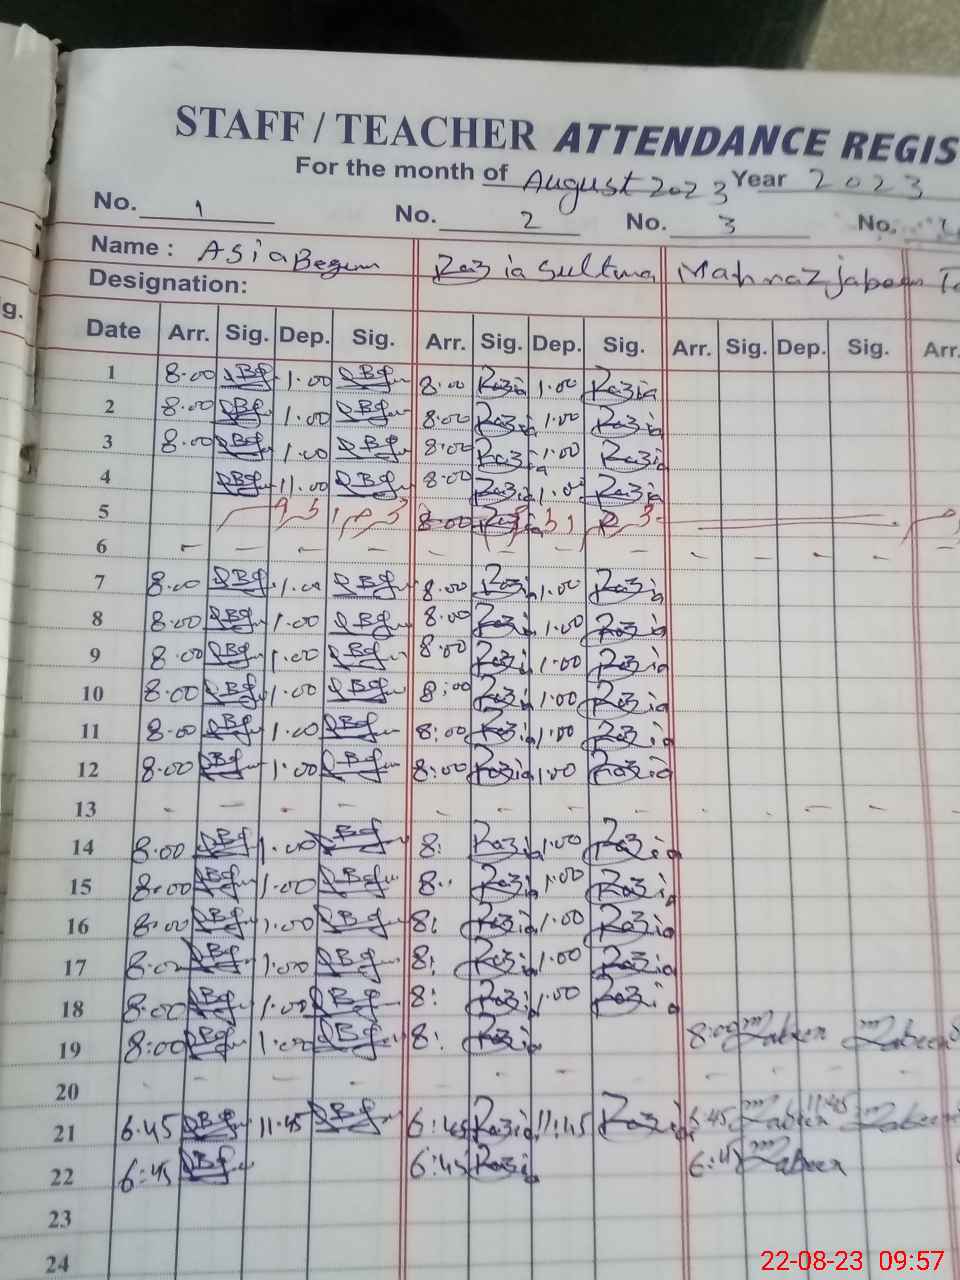 STAFF / TEACHER ATTENDANCE REGIS
For the month of August 2023 Year 2023
No. 1 No. 2 No. 3 No.
Name : Asia Begum Razia Sultma Mahnaz jabeen
Designation:
Date Arr. Sig. Dep. Sig. Arr. Sig. Dep. Sig. Arr. Sig. Dep. Sig. Arr.
1 8.00 1.00 8.00 Razia 1.00 Razia
2 8.00 1.00 8.00 Razia 1.00 Razia
3 8.00 1.00 8:00 Razia 1.00 Razia
4 11.00 8:00 Razia 1.00 Razia
5 8:00
6 - - - - - - - - - - - -
7 8.00 1.00 8.00 Razia 1.00 Razia
8 8.00 1.00 8.00 Razia 1.00 Razia
9 8.00 1.00 8:00 Razia 1.00 Razia
10 8.00 1.00 8:00 Razia 1.00 Razia
11 8.00 1.00 8:00 Razia 1.00 Razia
12 8.00 1.00 8:00 Razia 1.00 Razia
13 - - - - - - - - - - - -
14 8.00 1.00 8: Razia 1.00 Razia
15 8.00 1.00 8.. Razia 1.00 Razia
16 8.00 1.00 8: Razia 1.00 Razia
17 8.00 1.00 8: Razia 1.00 Razia
18 8.00 1.00 8: Razia 1.00 Razia
19 8:00 1.00 8: Razia 8:00 Jabeen Jabeen
20 - - - - - - - - - - - -
21 6:45 11.45 6:45 Razia 11:45 Razia 6:45 Jabeen 11:45 Jabeen
22 6:45 6:45 Razia 6:45 Jabeen
23
24
22-08-23 09:57